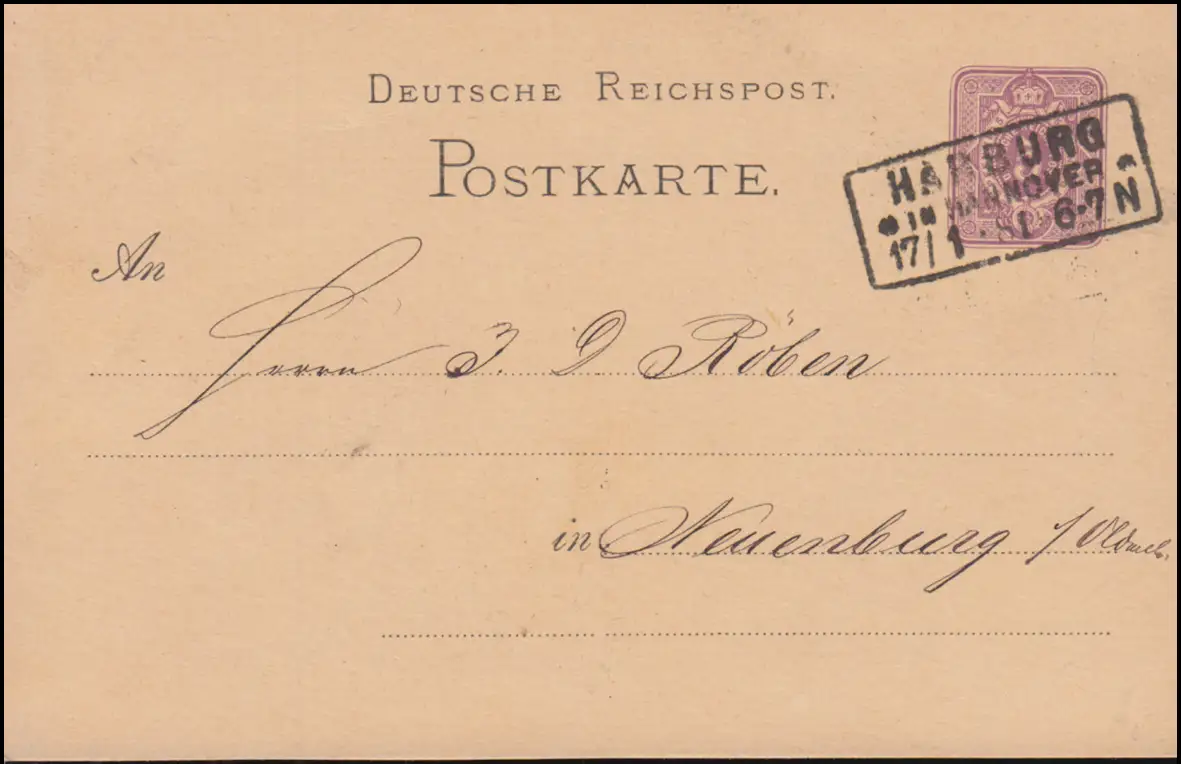 DEUTSCHE REICHSPOST.
POSTKARTE.
HARBURG
* IN HANNOVER *
17/1 81 6-7 N
An
Herrn J. D. Röben
in Neuenburg /